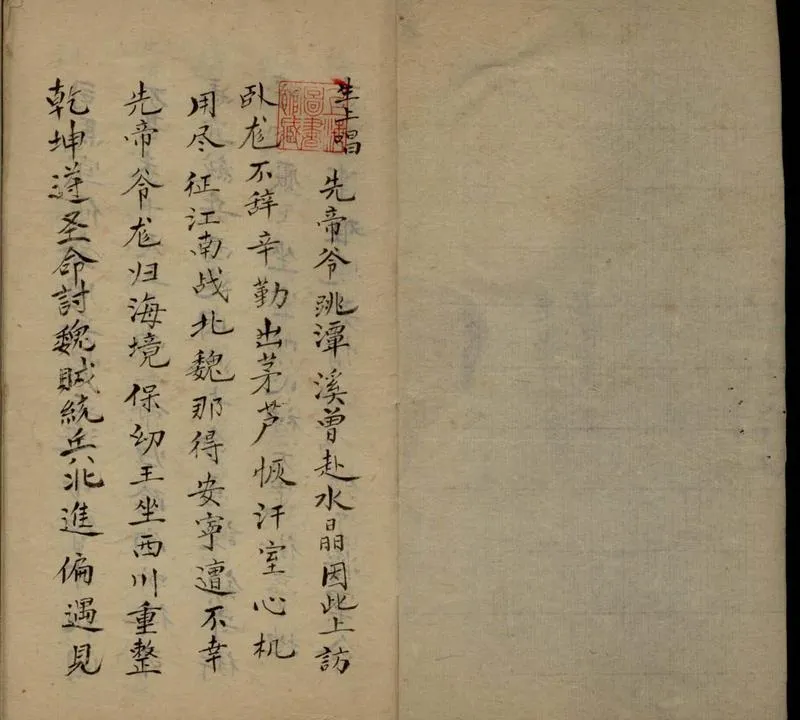 生上唱 先帝爷跳潭溪曾赴水晶因此上訪
卧尨不辞辛勤出茅芦恢汗室心机
用尽征江南战北魏那得安寧遭不幸
先帝爷尨归海境保幼王坐西川重整
乾坤遵圣命討魏賊統兵北進偏遇見
圖書
館藏